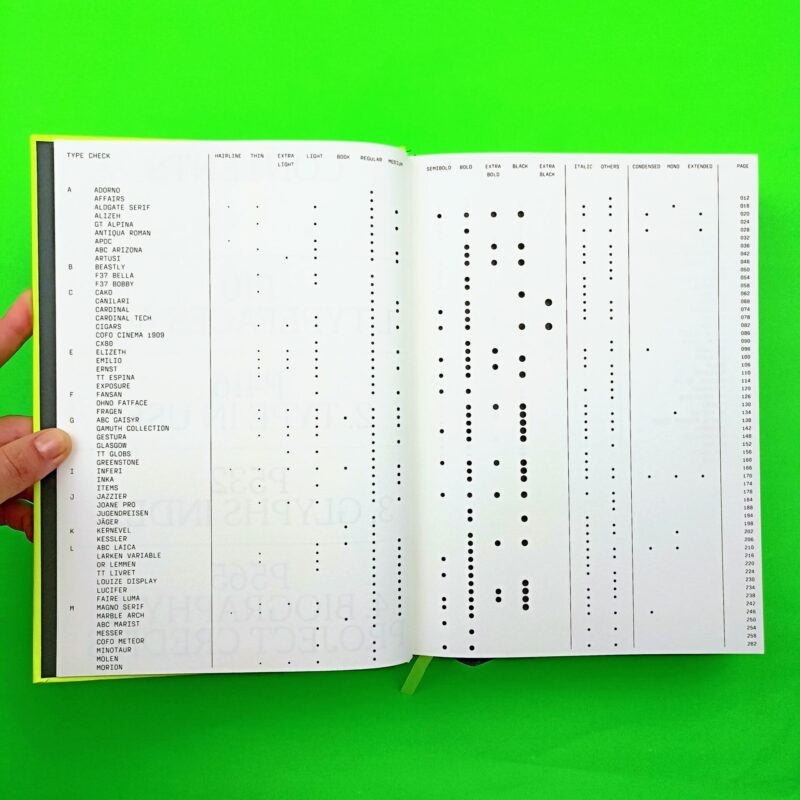 TYPE CHECK HAIRLINE THIN EXTRA LIGHT LIGHT BOOK REGULAR MEDIUM
A ADORNO
AFFAIRS
ALDGATE SERIF
ALIZEH
GT ALPINA
ANTIQUA ROMAN
APOC
ABC ARIZONA
ARTUSI
B BEASTLY
F37 BELLA
F37 BOBBY
C CAKO
CANILARI
CARDINAL
CARDINAL TECH
CIGARS
COFO CINEMA 1909
CX80
E ELIZETH
EMILIO
ERNST
TT ESPINA
EXPOSURE
F FANSAN
OHNO FATFACE
FRAGEN
G ABC GAISYR
GAMUTH COLLECTION
GESTURA
GLASGOW
TT GLOBS
GREENSTONE
I INFERI
INKA
ITEMS
J JAZZIER
JOANE PRO
JUGENDREISEN
JÄGER
K KERNEVEL
KESSLER
L ABC LAICA
LARKEN VARIABLE
OR LEMMEN
TT LIVRET
LOUIZE DISPLAY
LUCIFER
FAIRE LUMA
M MAGNO SERIF
MARBLE ARCH
ABC MARIST
MESSER
COFO METEOR
MINOTAUR
MOLEN
MORION
SEMIBOLD BOLD EXTRA BOLD BLACK EXTRA BLACK ITALIC OTHERS CONDENSED MONO EXTENDED PAGE
012
016
020
024
028
032
036
042
046
050
054
058
062
074
078
082
090
098
106
110
114
120
126
130
134
138
142
148
152
156
160
166
170
174
178
184
188
194
198
202
206
210
216
220
224
230
234
238
242
246
250
254
258
262